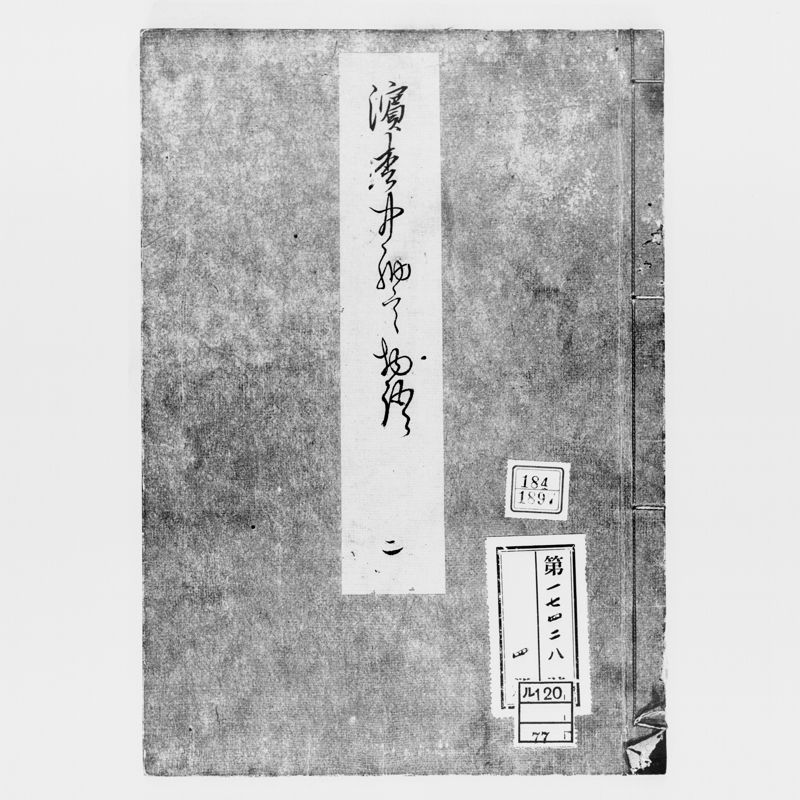 濱松中納言物語
二
184
1897
第一七四二八
四
ル120
77